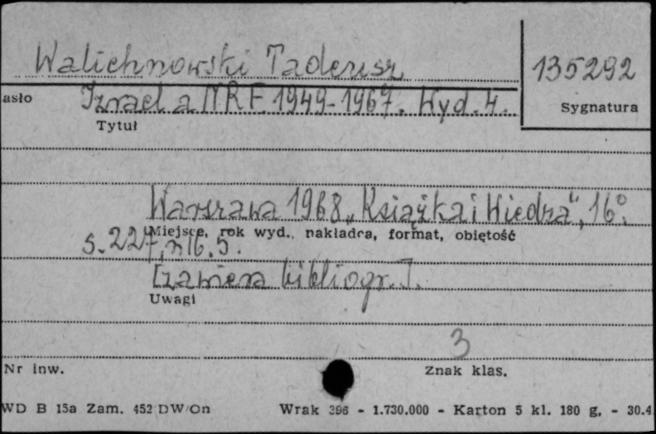 Walichnowski Tadeusz
135292
asło
Izrael a NRF 1949-1967. Wyd. 4.
Sygnatura
Tytuł
Warszawa 1968 „Książka i Wiedza”, 16°.
Miejsce, rok wyd., nakładca, format, objętość
s. 227, nlb. 5.
[zawiera bibliogr.].
Uwagi
3
Nr inw.
Znak klas.
WD B 15a Zam. 452 DW/On
Wrak 396 - 1.730.000 - Karton 5 kl. 180 g. - 30.4